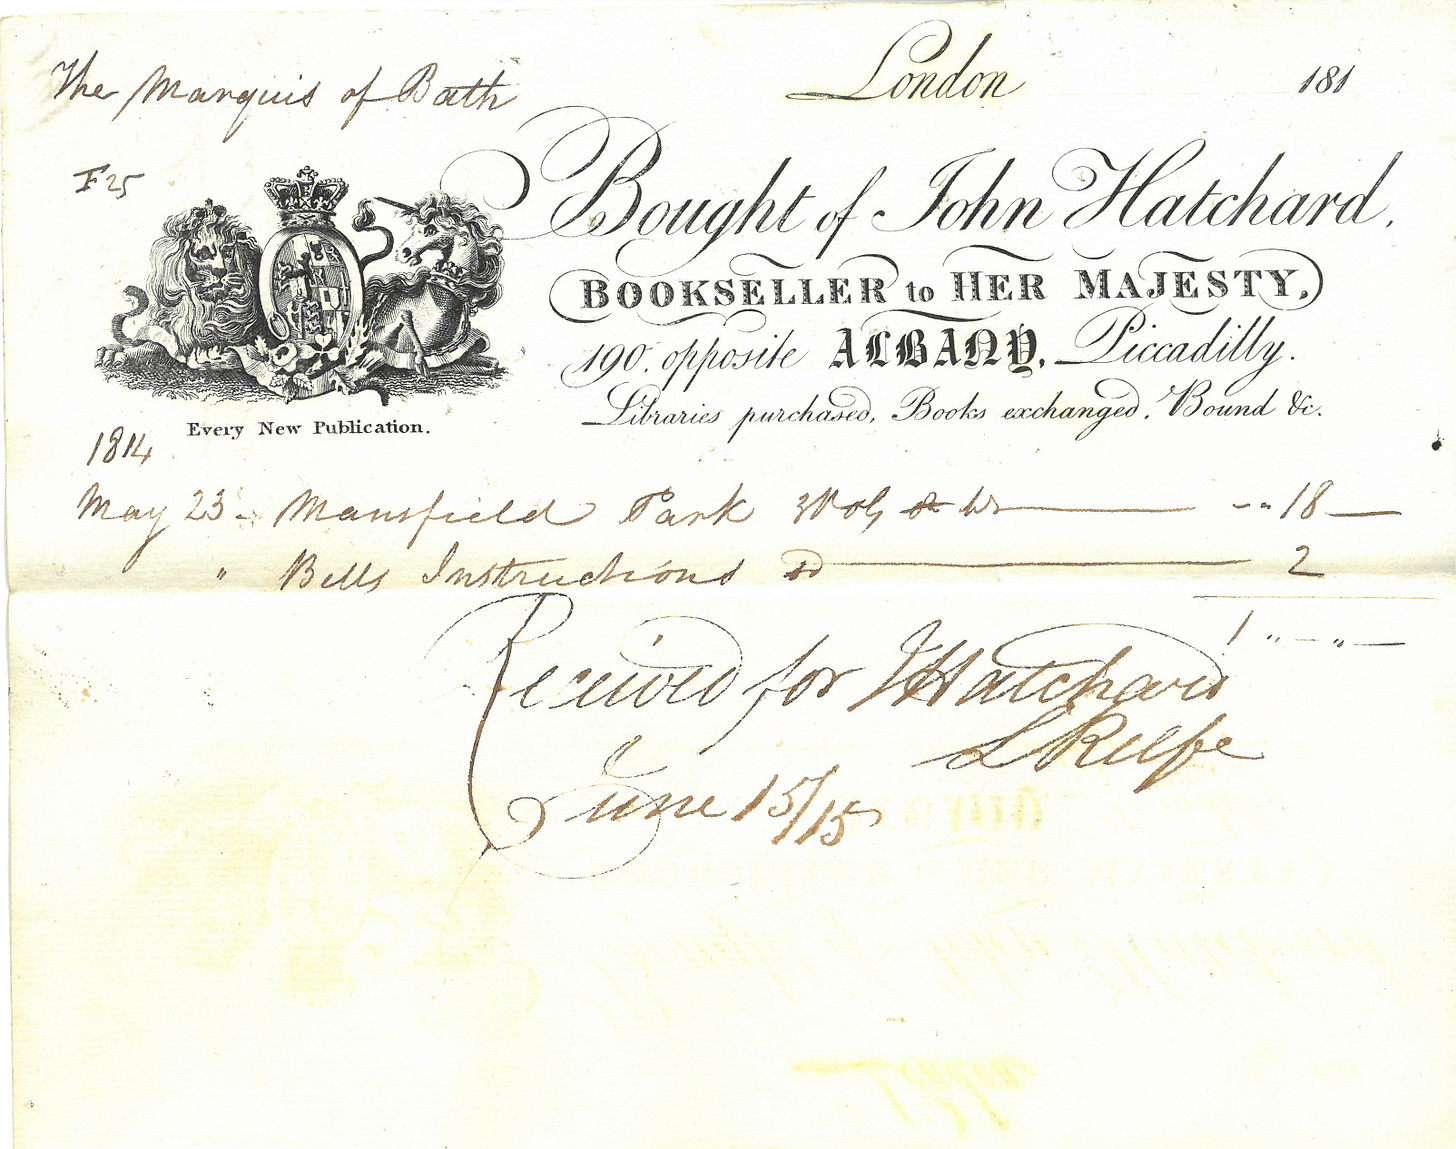 The Marquis of Bath
London 181
F 25
Bought of John Hatchard,
BOOKSELLER to HER MAJESTY,
190. opposite ALBANY, Piccadilly.
Libraries purchased, Books exchanged, Bound &c.
Every New Publication.
1814
May 23 - Mansfield Park 3 Vols - - 18 —
" Bells Instructions 2
1 " — " —
Received for J Hatchard
L Relfe
June 15/15